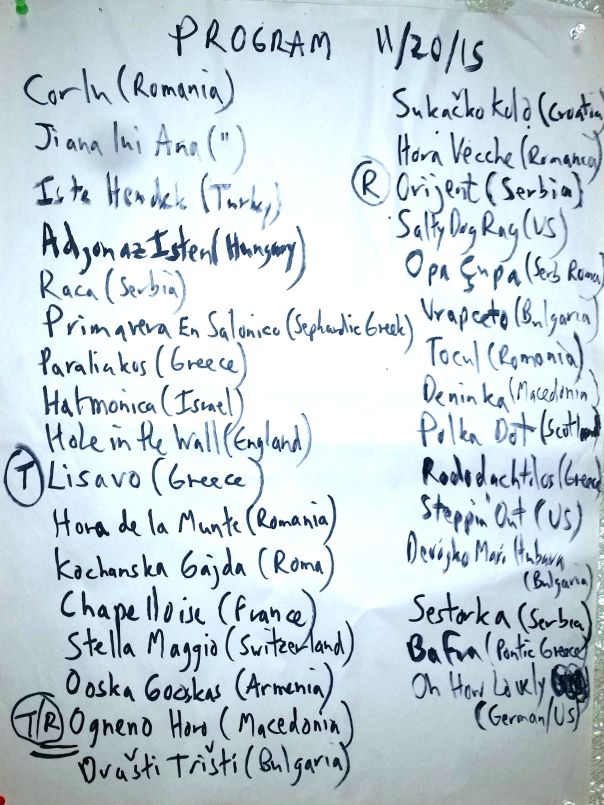 PROGRAM 11/20/15
Corlu (Romania)
Jiana lui Ana (")
Iste Hendek (Turkey)
Adjon az Isten (Hungary)
Raca (Serbia)
Primavera En Salonico (Sephardic Greek)
Paraliakos (Greece)
Harmonica (Israel)
Hole in the Wall (England)
T Lisavo (Greece)
Hora de la Munte (Romania)
Kochanska Gajda (Roma)
Chapelloise (France)
Stella Maggio (Switzerland)
Ooska Gooskas (Armenia)
T/R Ogneno Horo (Macedonia)
Drăsti Tristi (Bulgaria)
Sukačko Kolo (Croatia)
Hora Vecche (Romanca)
R Orijent (Serbia)
Salty Dog Rag (US)
Opa Çupa (Serb Roma)
Vrapceto (Bulgaria)
Tocul (Romania)
Deninka (Macedonia)
Polka Dot (Scotland
Rododachtilos (Greece)
Steppin' Out (US)
Hubava
(Bulgaria)
Sestorka (Serbia)
Bafra (Pontic Greece)
Oh How Lovely
(German/US)